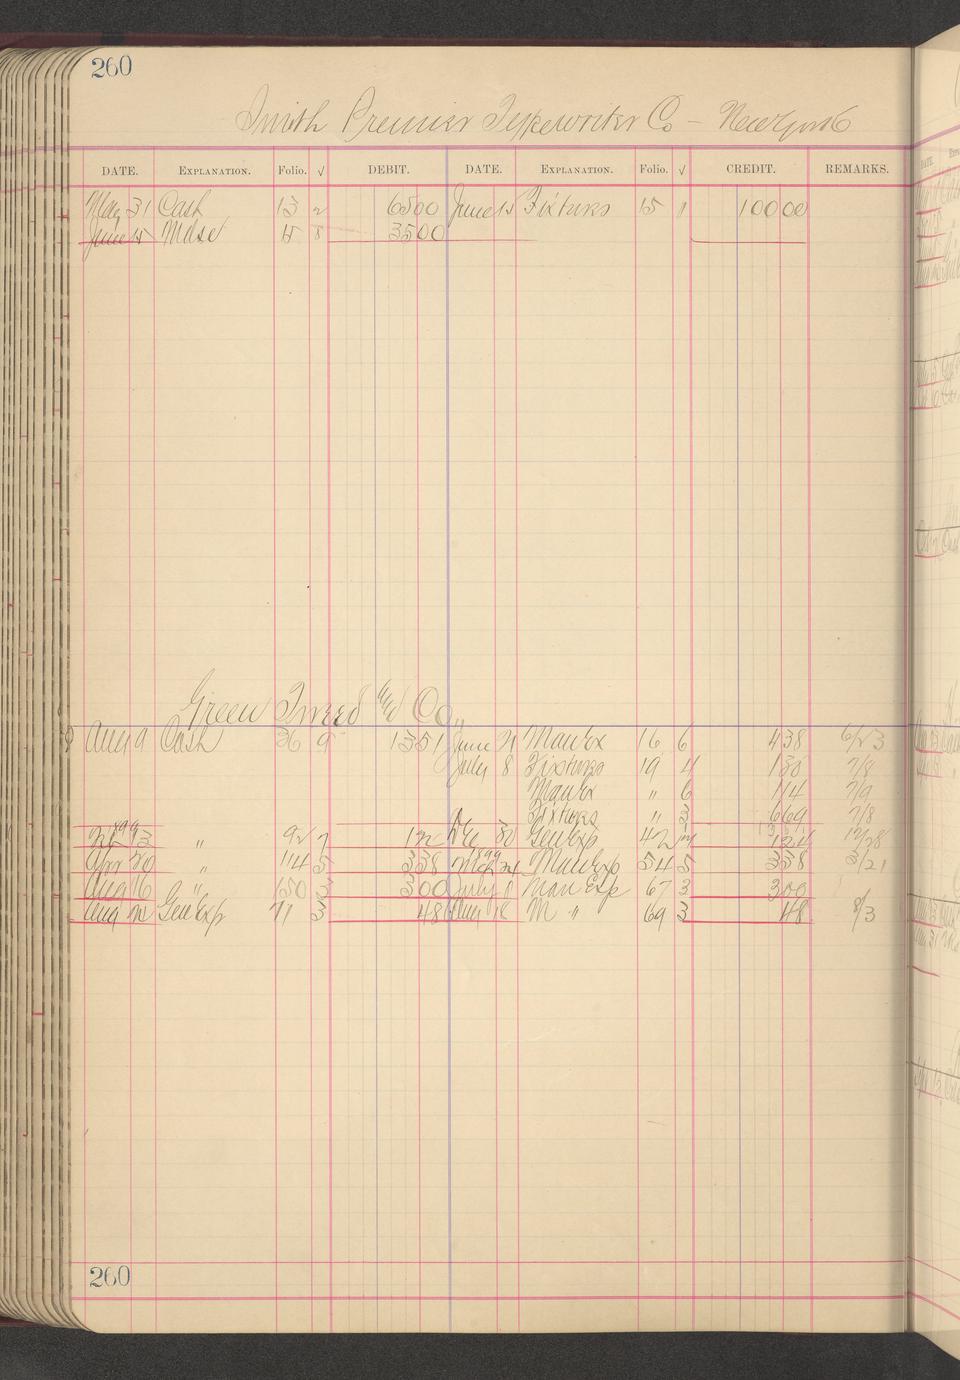 260
Smith Premier Typewriter Co - New York
DATE. EXPLANATION. Folio. √ DEBIT. DATE. EXPLANATION. Folio. √ CREDIT. REMARKS.
May 31 Cash 13 2 6500 June 15 Fixtures 15 1 10000
June 15 Mdse 15 8 3500
Green Tweed & Co
Aug 9 Cash 36 9 1351 June 21 Man Ex 16 6 438 6/23
July 8 Fixtures 19 4 130 7/8
Man Ex " 6 114 7/9
Fixtures " 3 669 7/8
1899
13 " 92 7 124 Dec 30 Gen Exp 42 124 12/28
Apr 20 " 114 5 338 1899 Mch 24 Man Exp 54 5 338 3/21
Aug 16 " 150 3 300 July 11 Man Exp 67 3 300
Aug 22 Gen Exp 71 3 48 Aug 18 M " 69 3 48 8/3
260